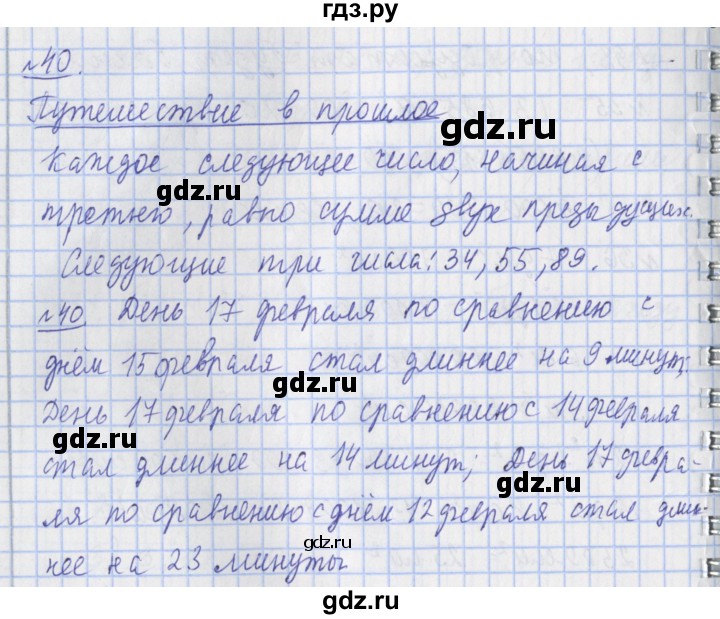 гдз.ру
№40.
Путешествие в прошлое
Каждое следующее число, начиная с
gdz.ru
gdz.ru
третьего, равно сумме двух предыдущих.
Следующие три числа: 34, 55, 89.
№40 День 17 февраля по сравнению с
gdz.ru
днём 15 февраля стал длиннее на 9 минут;
День 17 февраля по сравнению с 14 февраля
gdz.ru
стал длиннее на 14 минут; День 17 февра-
gdz.ru
ля по сравнению с днём 12 февраля стал длин-
нее на 23 минуты
gdz.ru
gdz.ru